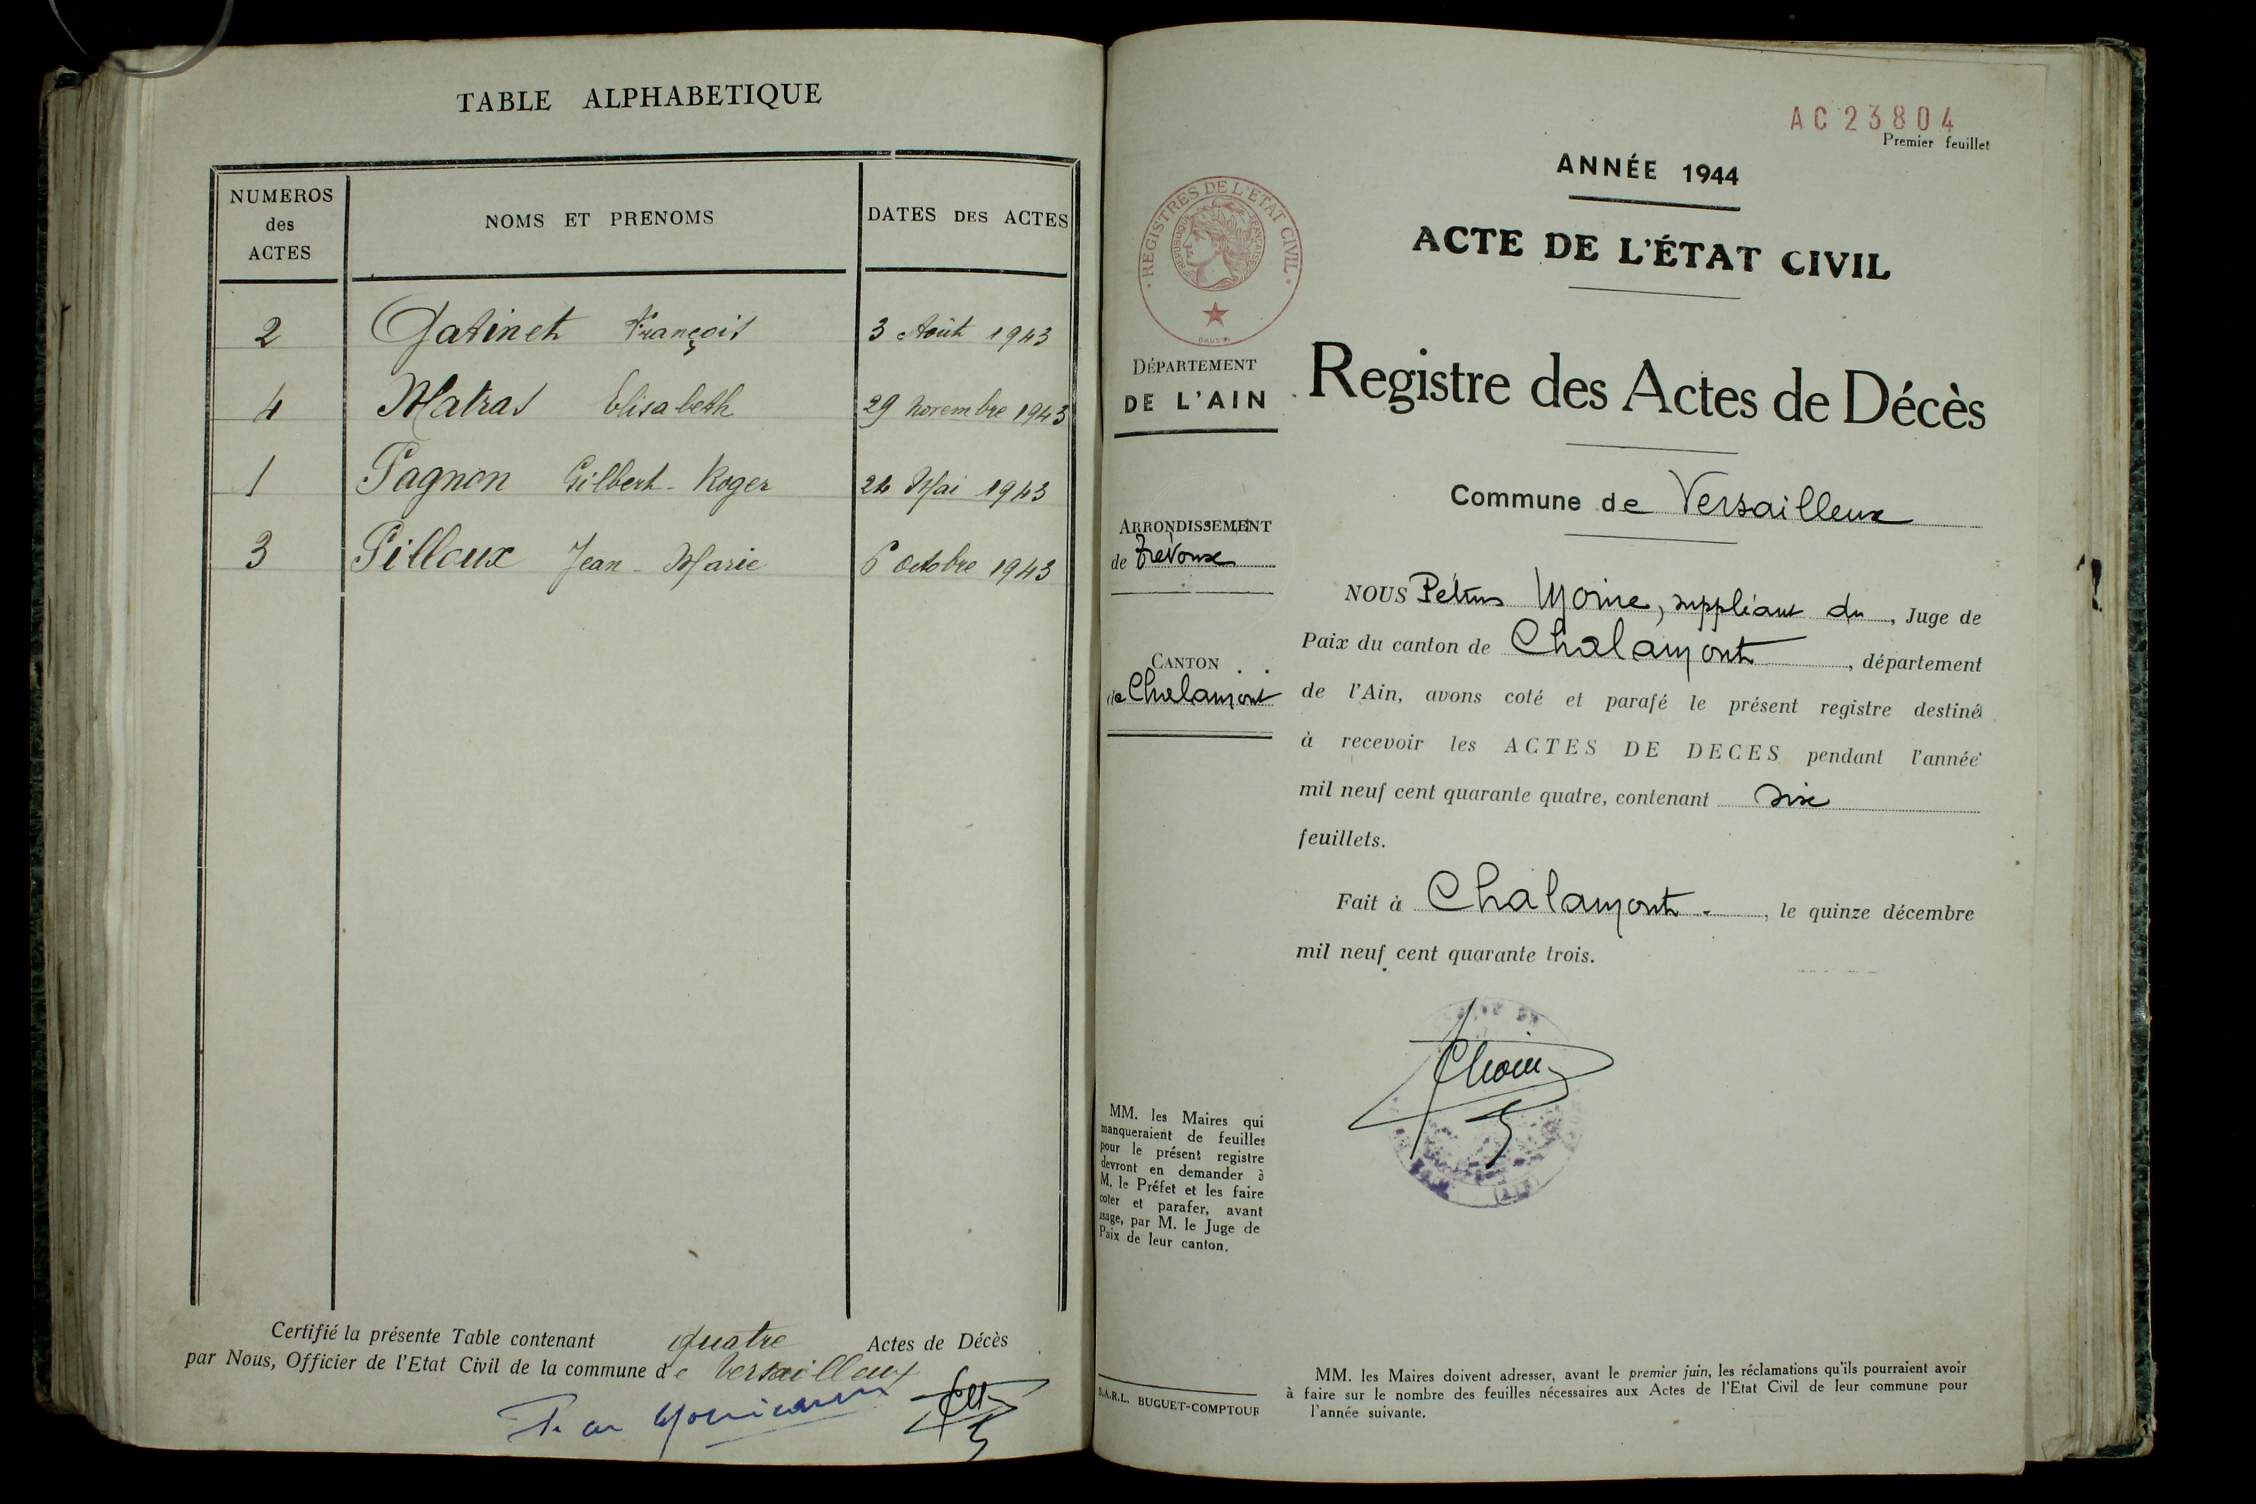 TABLE ALPHABETIQUE
NUMEROS
des
ACTES
NOMS ET PRENOMS
DATES DES ACTES
2 Gatinet François 3 Août 1943
4 Matras Elisabeth 29 novembre 1943
1 Pagnon Gilbert-Roger 24 Mai 1943
3 Pilloux Jean-Marie 6 Octobre 1943
Certifié la présente Table contenant quatre Actes de Décès
par Nous, Officier de l'Etat Civil de la commune de Versailleux
AC23804
Premier feuillet
ANNÉE 1944
ACTE DE L'ÉTAT CIVIL
REGISTRES DE L'ETAT CIVIL
REPUBLIQUE FRANÇAISE
DÉPARTEMENT
DE L'AIN
Registre des Actes de Décès
Commune de Versailleux
ARRONDISSEMENT
de Trévoux
CANTON
de Chalamont
NOUS Petrus Moine, suppléant du, Juge de
Paix du canton de Chalamont, département
de l'Ain, avons coté et parafé le présent registre destiné
à recevoir les ACTES DE DECES pendant l'année
mil neuf cent quarante quatre, contenant six
feuillets.
Fait à Chalamont, le quinze décembre
mil neuf cent quarante trois.
MM. les Maires qui
manqueraient de feuilles
pour le présent registre
devront en demander à
M. le Préfet et les faire
coter et parafer, avant
usage, par M. le Juge de
Paix de leur canton.
S.A.R.L. BUGUET-COMPTOUR
MM. les Maires doivent adresser, avant le premier juin, les réclamations qu'ils pourraient avoir
à faire sur le nombre des feuilles nécessaires aux Actes de l'Etat Civil de leur commune pour
l'année suivante.